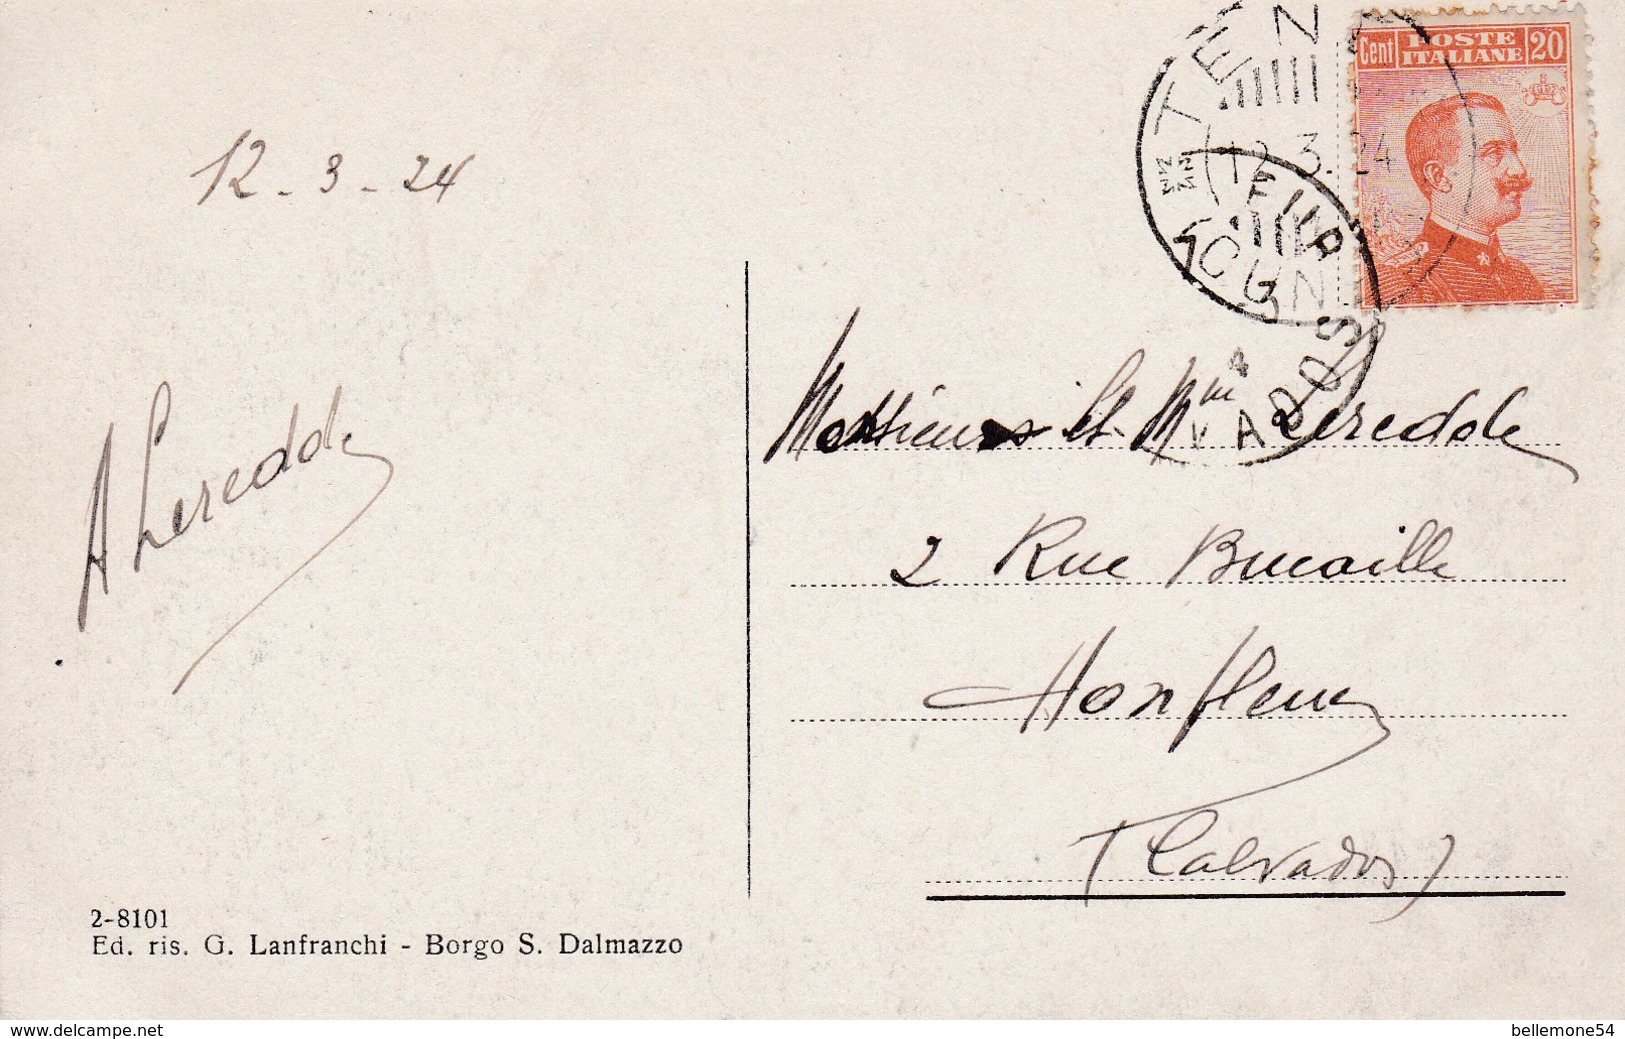 12-3-24
A Leredde
2-8101
Ed. ris. G. Lanfranchi - Borgo S. Dalmazzo
Cent POSTE ITALIANE 20
TEN
12.3.24
CUN
Monsieur et Mme Leredde
2 Rue Bucaille
Honfleur
(Calvados)
www.delcampe.net
bellemone54